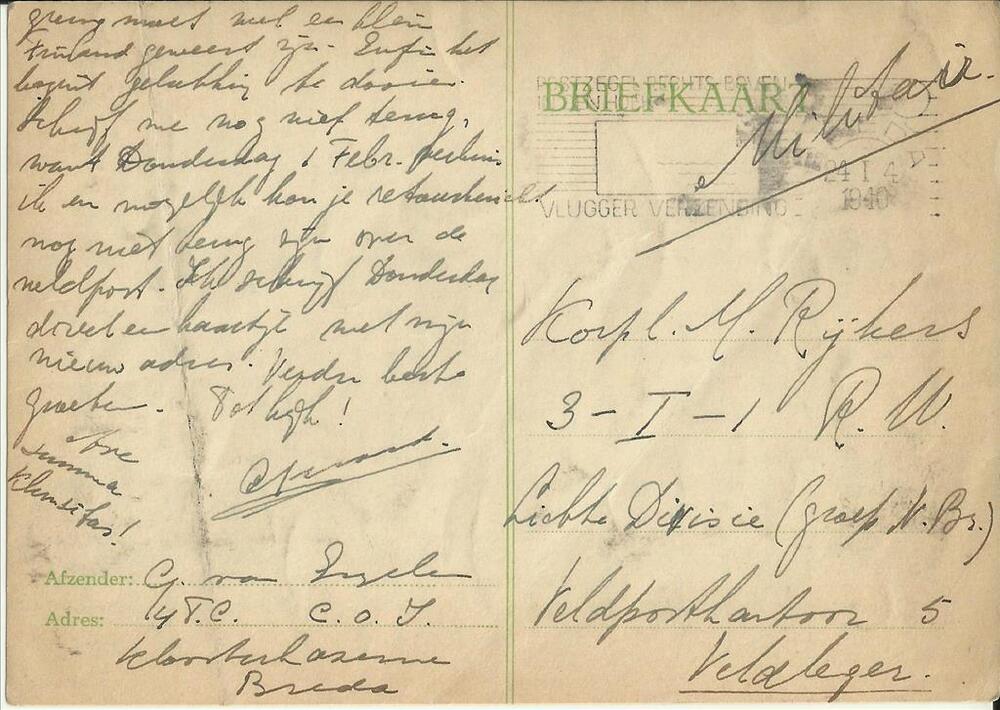 grens moet wel een klein
Finland geweest zijn. Enfin het
begint gelukkig te dooien.
Schrijf me nog niet terug,
want Donderdag 1 Febr.
ik en mogelijk kan je
nog niet terug zijn over de
veldpost. Ik schrijf Donderdag
direct een kaartje met mijn
nieuw adres. Verder beste
groeten. Tot kijk!
Ave
summa
Afzender: G. van
Adres: 4 T.C. C.O.I.
Kloosterkazerne
Breda
BRIEFKAART
POSTZEGEL RECHTS BOVEN
VLUGGER VERZENDING
24 I 4
1940
Militair
Korpl. M. Rijkers
3-I-1 R.W.
Lichte Divisie (groep N. Br.)
Veldpostkantoor 5
Veldleger.